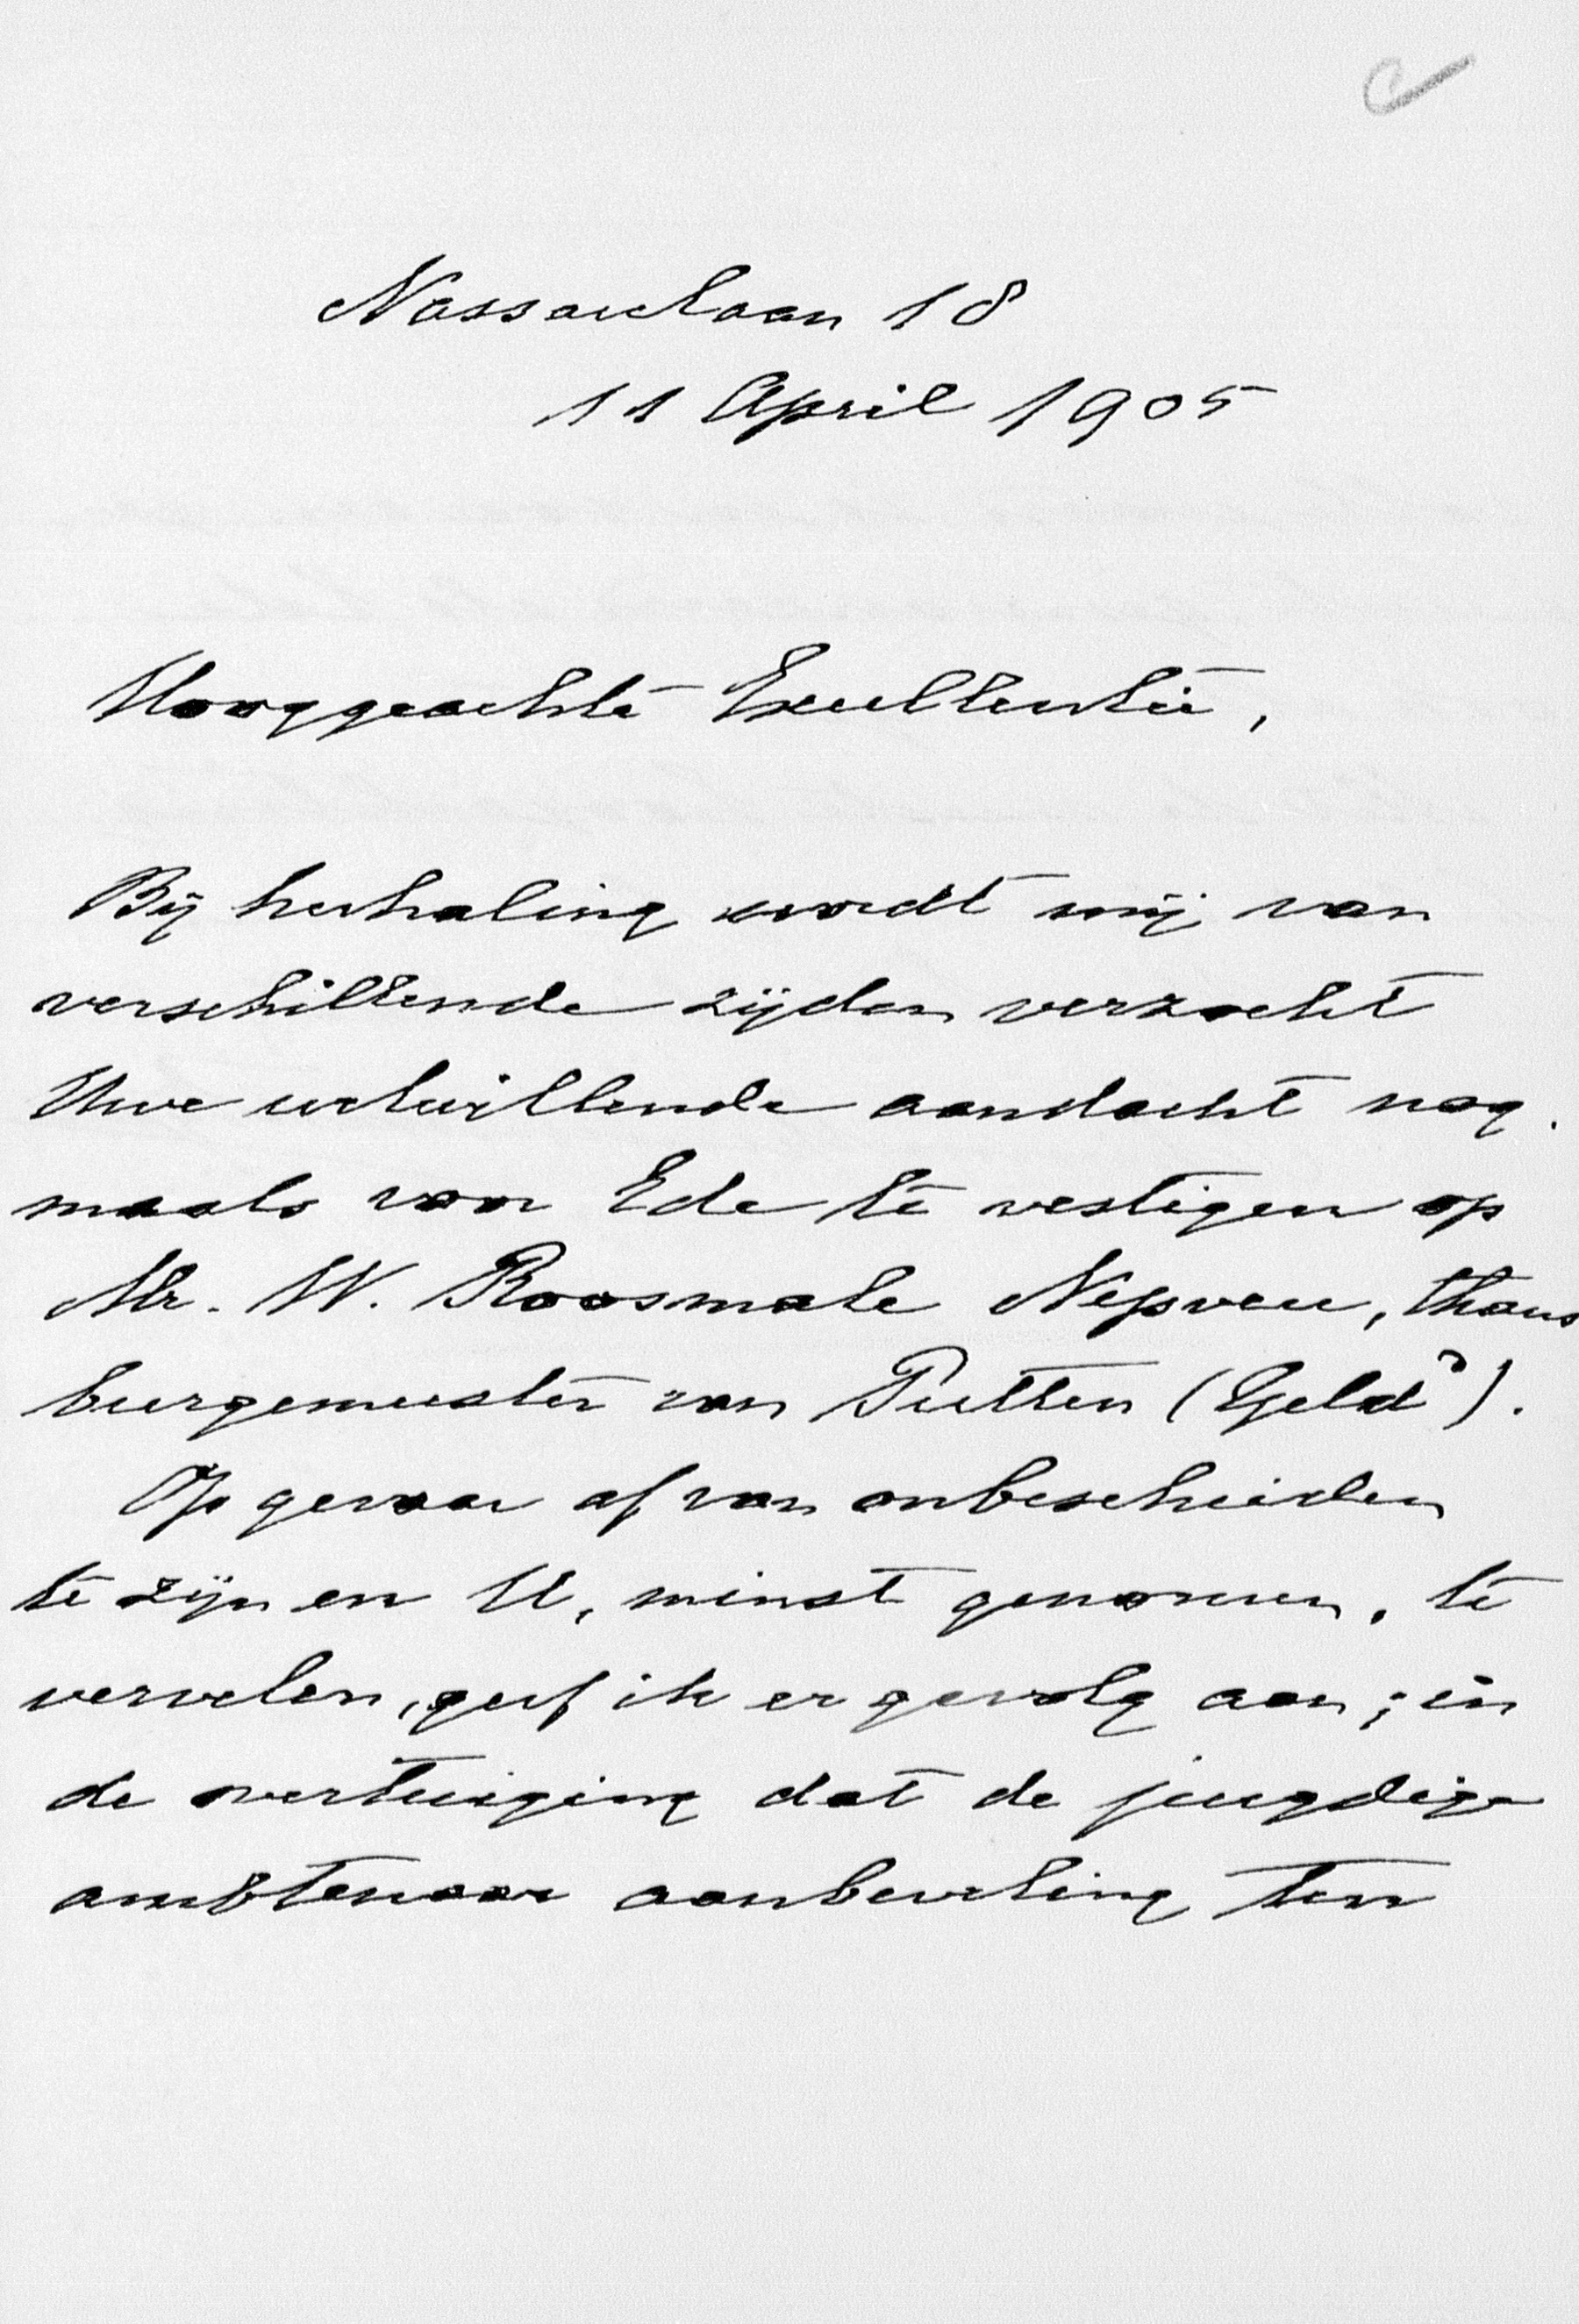 Nassaulaan 18
11 April 1905
Hooggeachte Excellentie,
Bij herhaling wordt mij van
verschillende zijden verzocht
Uwe welwillende aandacht nog-
maals voor Ede te vestigen op
Mr. W. Roosmale Nepveu, thans
burgemeester van Putten (Geld).
Op gevaar af van onbescheiden
te zijn en U, minst genomen, te
vervelen, geef ik er gevolg aan; in
de overtuiging dat de jeugdige
ambtenaar aanbeveling ten